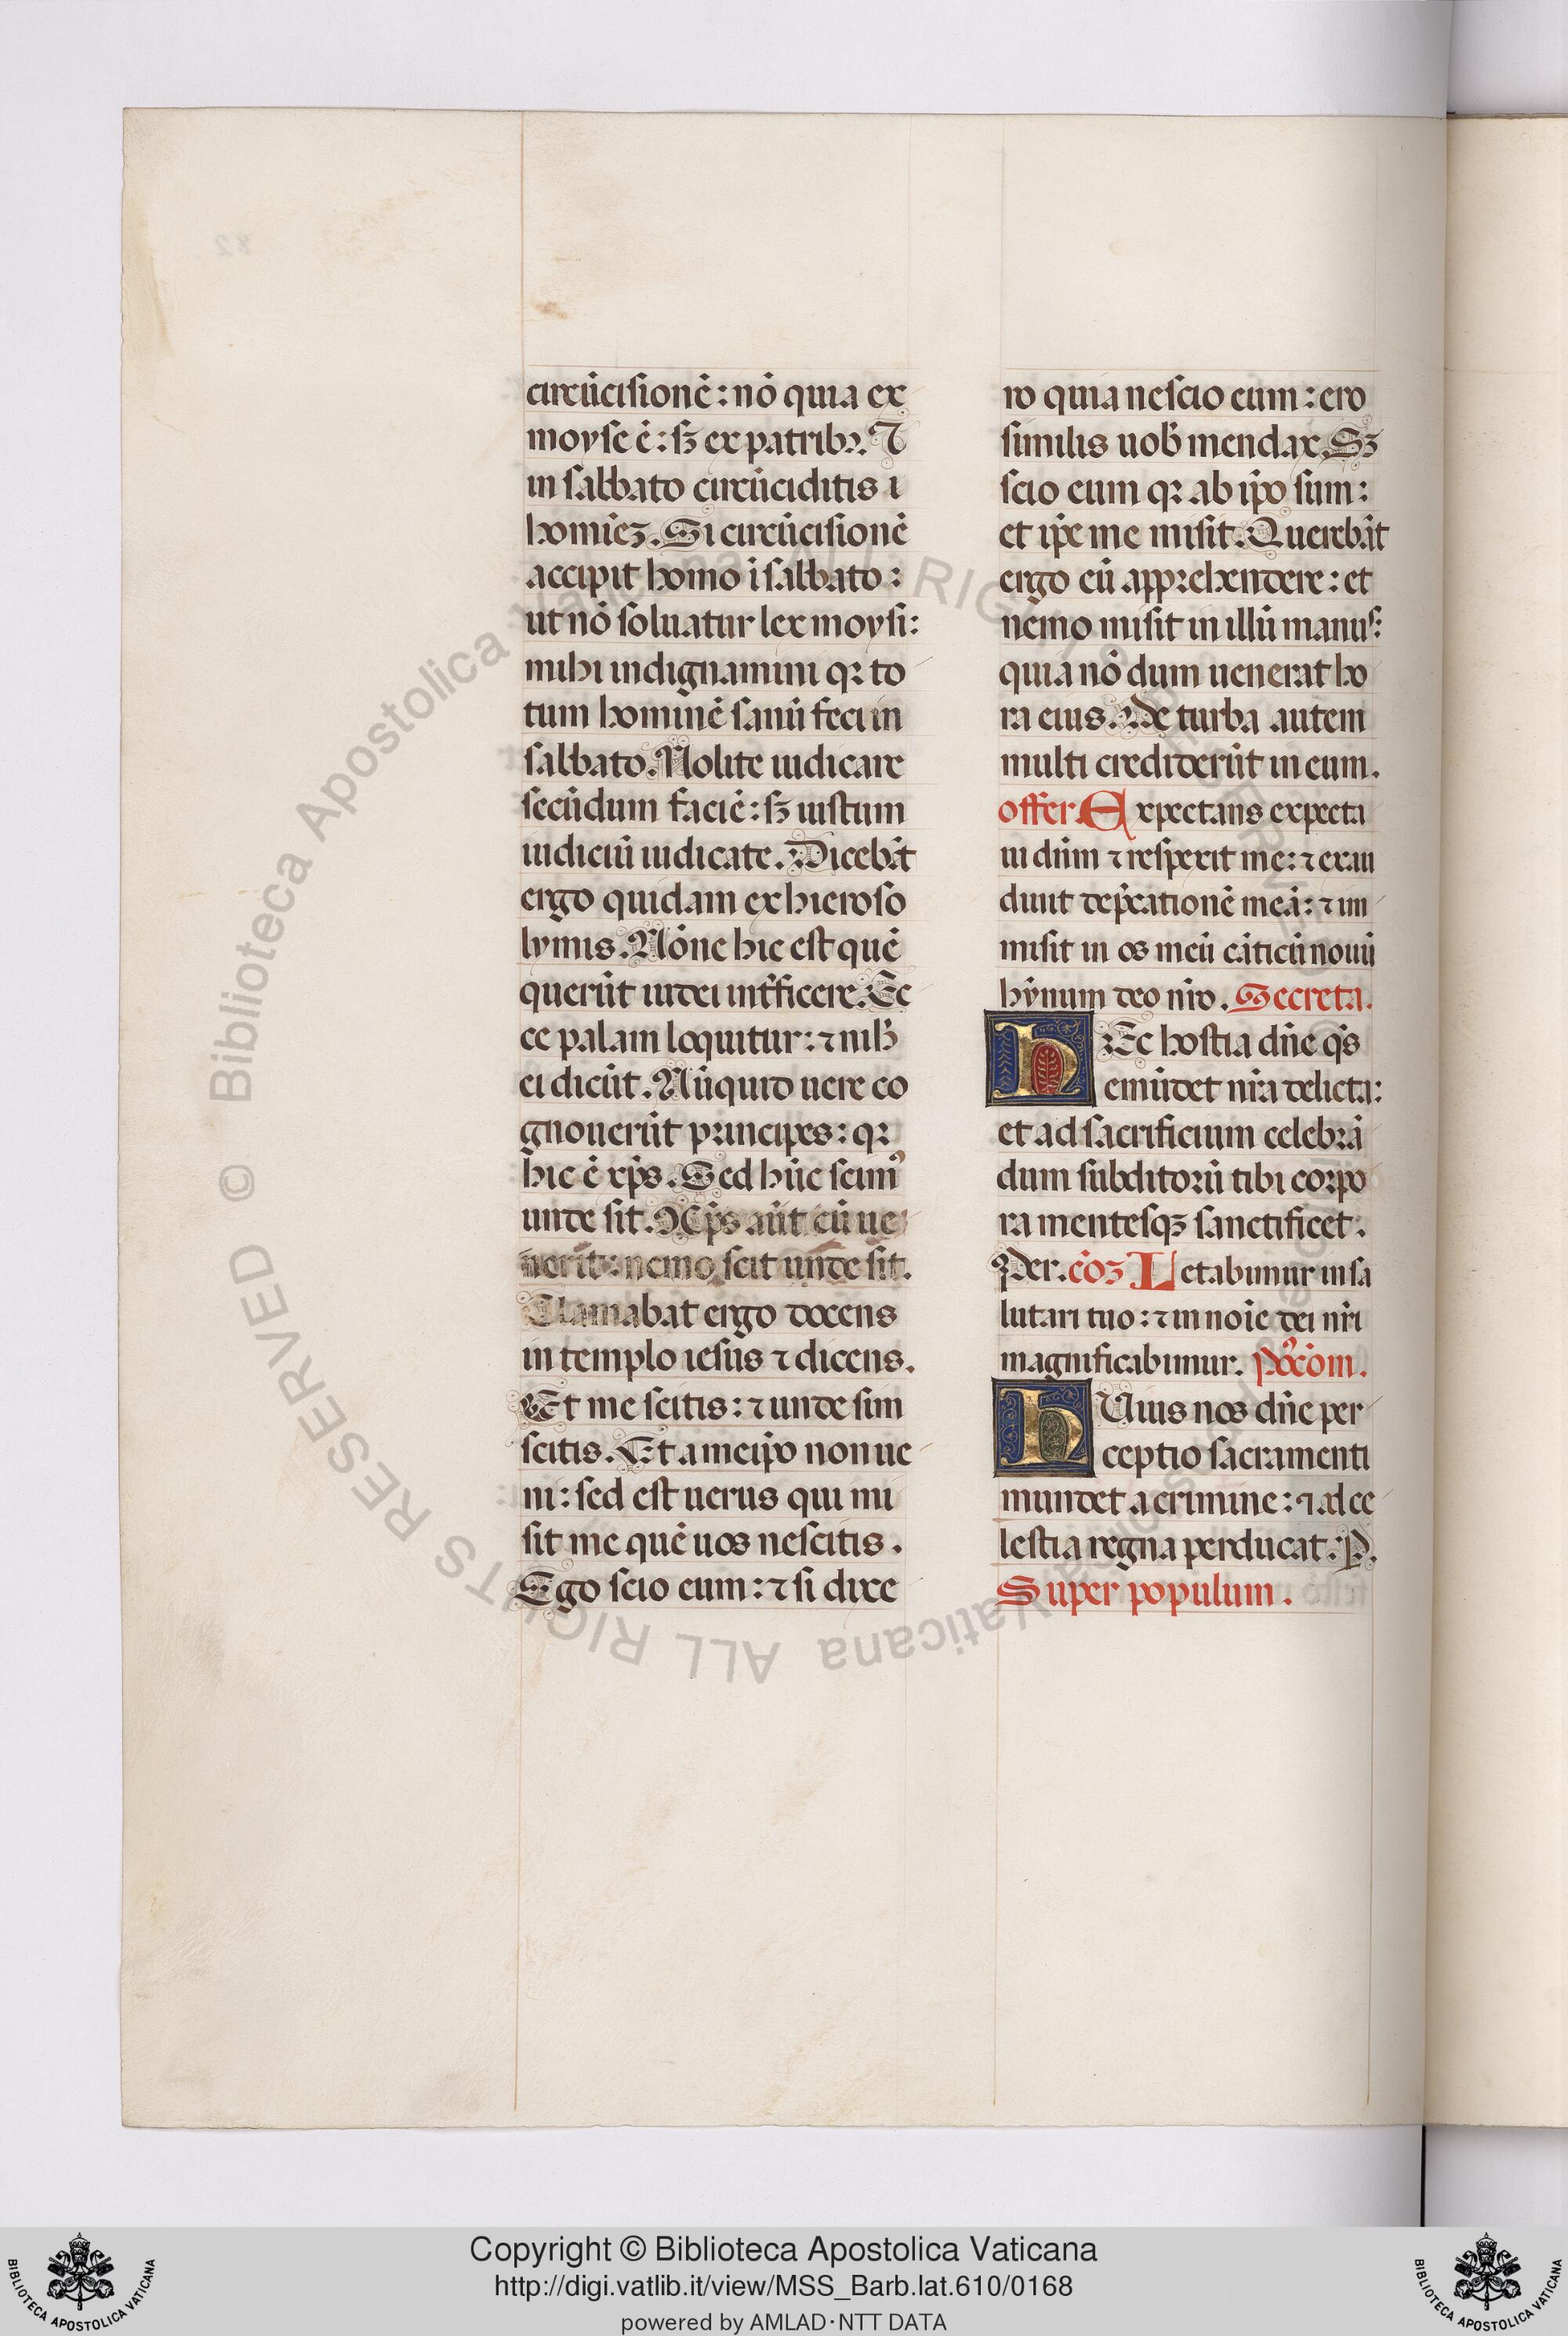 circu̅cisione̅: no̅ quia ex
moyse e̅: sʒ ex patribꝫ. ⁊
in sabbato circu̅ciditis i
homi̅eꝫ. Si circu̅cisione̅
accipit homo i̅ sabbato:
ut no̅ soluatur lex moysi:
mihi indignamini qꝛ to
tum homine̅ sanu̅ feci in
sabbato. Nolite iudicare
secu̅dum facie̅: sʒ iustum
iudiciu̅ iudicate. Diceba̅t
ergo quidam ex hieroso
lymis. No̅ne hic est que̅
queru̅t iudei int̅ficere. Ec
ce palam loquitur: ⁊ nih̅
ei dicu̅t. Nu̅quid uere co
gnoueru̅t principes: qꝛ
hic e̅ xp̅s. Sed hu̅c scimꝰ
unde sit. Xp̅s aut̅ cu̅ ue
nerit: nemo scit unde sit.
Clamabat ergo docens
in templo iesus ⁊ dicens.
Et me scitis: ⁊ unde sim
scitis. Et a meip̅o non ue
ni: sed est uerus qui mi
sit me que̅ uos nescitis.
Ego scio eum: ⁊ si dixe
ro quia nescio eum: ero
similis uob̅ mendax. Sʒ
scio eum qꝛ ab ip̅o sum:
et ip̅e me misit. Quereba̅t
ergo eu̅ apprehendere: et
nemo misit in illu̅ manus:
quia no̅ dum uenerat ho
ra eius. De turba autem
multi credideru̅t in eum.
offer. Expectans expecta
ui dn̅m ⁊ respexit me: ⁊ exau
diuit dep̅catione̅ mea̅: ⁊ im
misit in os meu̅ ca̅ticu̅ nouu̅
hy̅num deo nr̅o. Secreta.
hEc hostia dn̅e qs̅
emu̅det nr̅a delicta:
et ad sacrificium celebra̅
dum subditoru̅ tibi corpo
ra mentesqꝫ sanctificet.
Per. co̅ꝫ Letabimur in sa
lutari tuo: ⁊ in no̅ie dei nr̅i
magnificabimur. Po̅com.
hUius nos dn̅e per
ceptio sacramenti
mundet a crimine: ⁊ ad ce
lestia regna perducat. P.
Super populum.
Copyright © Biblioteca Apostolica Vaticana
http://digi.vatlib.it/view/MSS_Barb.lat.610/0168
powered by AMLAD·NTT DATA
© Biblioteca Apostolica Vaticana ALL RIGHTS RESERVED
BIBLIOTECA APOSTOLICA VATICANA
BIBLIOTECA APOSTOLICA VATICANA